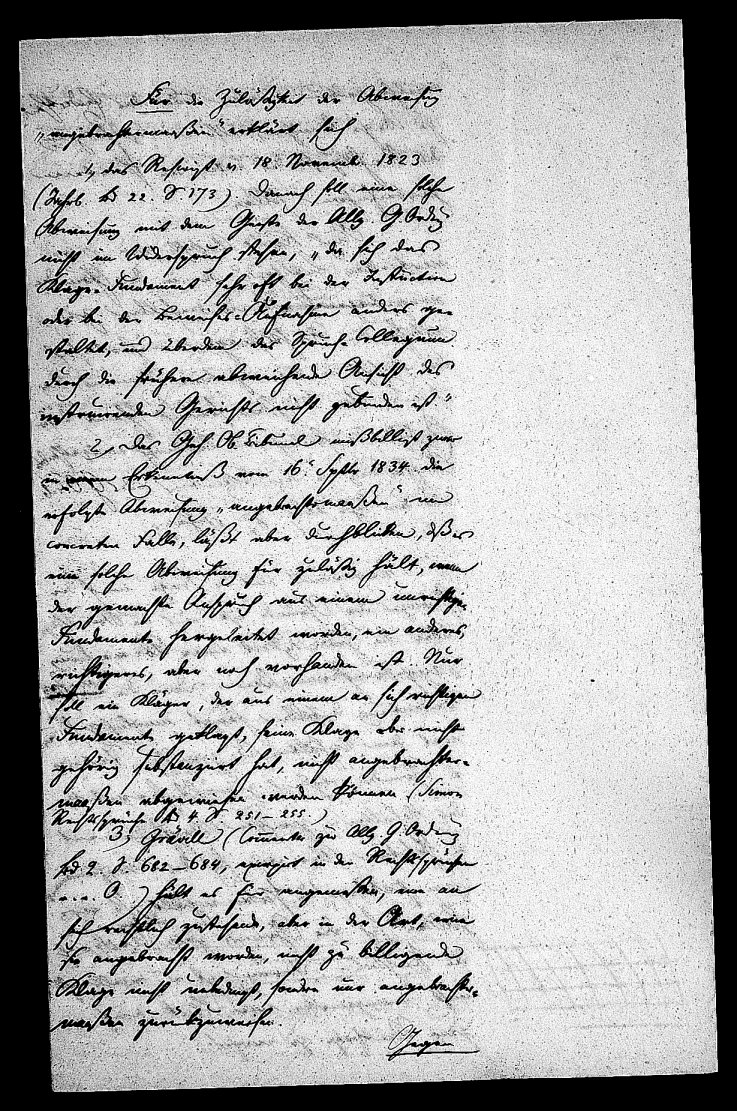 Für die Zuläßigkeit der Abweisung
„angebrachtermaaßen“ erklärt sich
1, das Rescript v. 18. Novemb. 1823
(Jahrb. Bd 22. S 173) Danach soll eine solche
Abweisung mit dem Geiste der Allg. G Ordng
nicht im Widerspruch stehen, „da sich das
Klage-Fundament sehr oft bei der Instruction
oder bei der Beweises-Aufnahme anders ge-
staltet, und überdem das Spruch-Collegium
durch die frühere abweichende Ansicht des
instruirenden Gerichts nicht gebunden ist“
2, Das Geh. Ob. Tribunal mißbilligt zwar
in einem Erkenntniß vom 16t Septbr 1834 die
erfolgte Abweisung „angebrachtermaaßen“ im
concreten Falle, läßt aber durchblicken, daß es
eine solche Abweisung für zuläßig hält, wenn
der gemachte Anspruch aus einem unrichtigen
Fundamente hergeleitet worden, ein anderes,
richtigeres, aber noch vorhanden ist. Nur
soll ein Kläger, der aus einem an sich richtigen
Fundamente geklagt, seine Klage aber nicht
gehörig substanzirt hat, nicht angebrachter-
maaßen abgewiesen werden können (Simon
Rechtssprüche Bd 4. S 251–255.)
3, Grävell (Comment. zur Allg. G. Ordnung
Bd 2. S. 682–684, in den Rechtssprüchen
a. a. O.) hält es für angemessen, eine an
sich rechtlich zustehende, aber in der Art, wie
sie angebracht worden, nicht zu billigende
Klage nicht unbedingt, sondern nur angebrachter-
maaßen zurückzuweisen.
Gegen